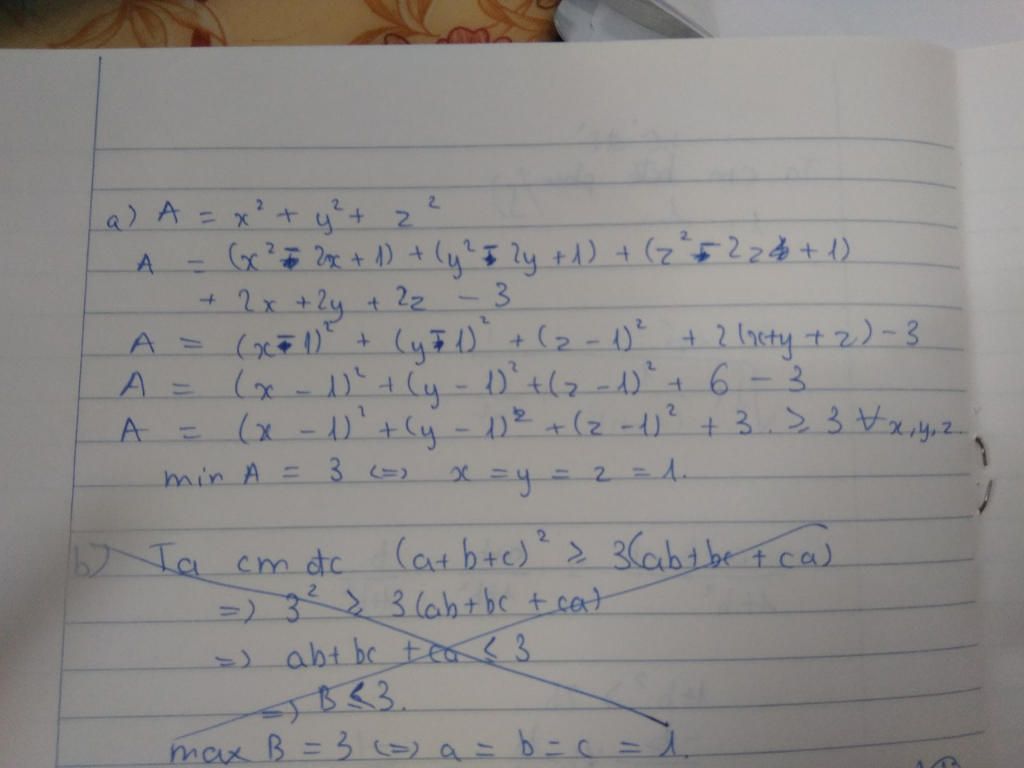 a) A = x² + y² + z²
A = (x² - 2x + 1) + (y² - 2y + 1) + (z² - 2z + 1)
+ 2x + 2y + 2z - 3
A = (x - 1)² + (y - 1)² + (z - 1)² + 2(x+y+z) - 3
A = (x - 1)² + (y - 1)² + (z - 1)² + 6 - 3
A = (x - 1)² + (y - 1)² + (z - 1)² + 3 ≥ 3 ∀x,y,z
min A = 3 <=> x = y = z = 1.
b) Ta cm đc (a+b+c)² ≥ 3(ab+bc+ca)
=> 3² ≥ 3(ab+bc+ca)
=> ab+bc+ca ≤ 3
=> B ≤ 3.
max B = 3 <=> a = b = c = 1.